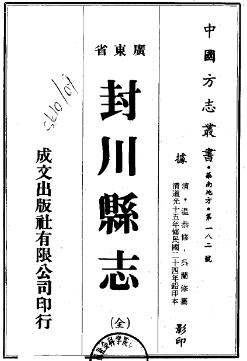 中國方志叢書·華南地方·第一八二號
據
清·溫恭修·吳蘭修纂
清道光十五年修民國二十四年鉛印本
影印
廣東省
封川縣志
(全)
成文出版社有限公司印行